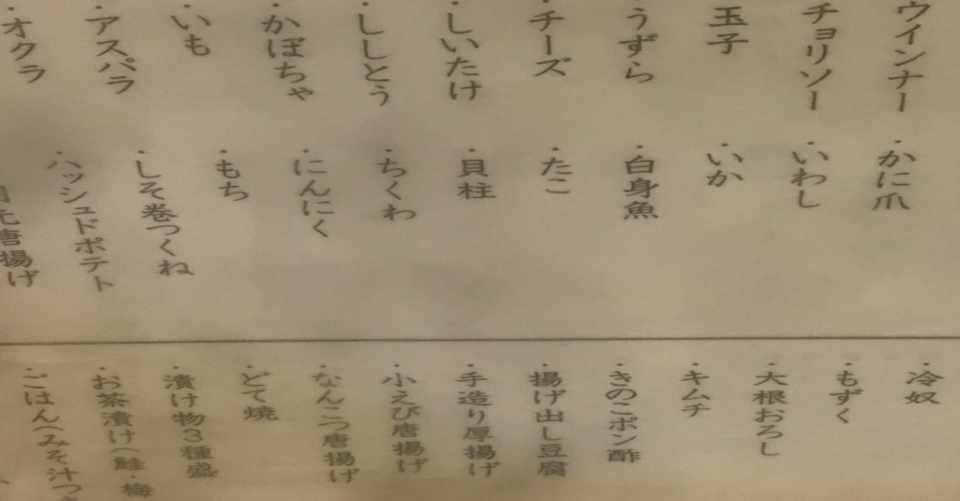 ウインナー
チョリソー
玉子
・うずら
・チーズ
・しいたけ
・ししとう
・かぼちゃ
・いも
・アスパラ
・オクラ
・かに爪
・いわし
・いか
・白身魚
・たこ
・貝柱
・ちくわ
・にんにく
・もち
・しそ巻つくね
・ハッシュドポテト
唐揚げ
・冷奴
・もずく
・大根おろし
・キムチ
・きのこポン酢
・揚げ出し豆腐
・手造り厚揚げ
・小えび唐揚げ
・なんこつ唐揚げ
・どて焼
・漬け物3種盛
・お茶漬け(鮭・梅
・ごはん(みそ汁つき